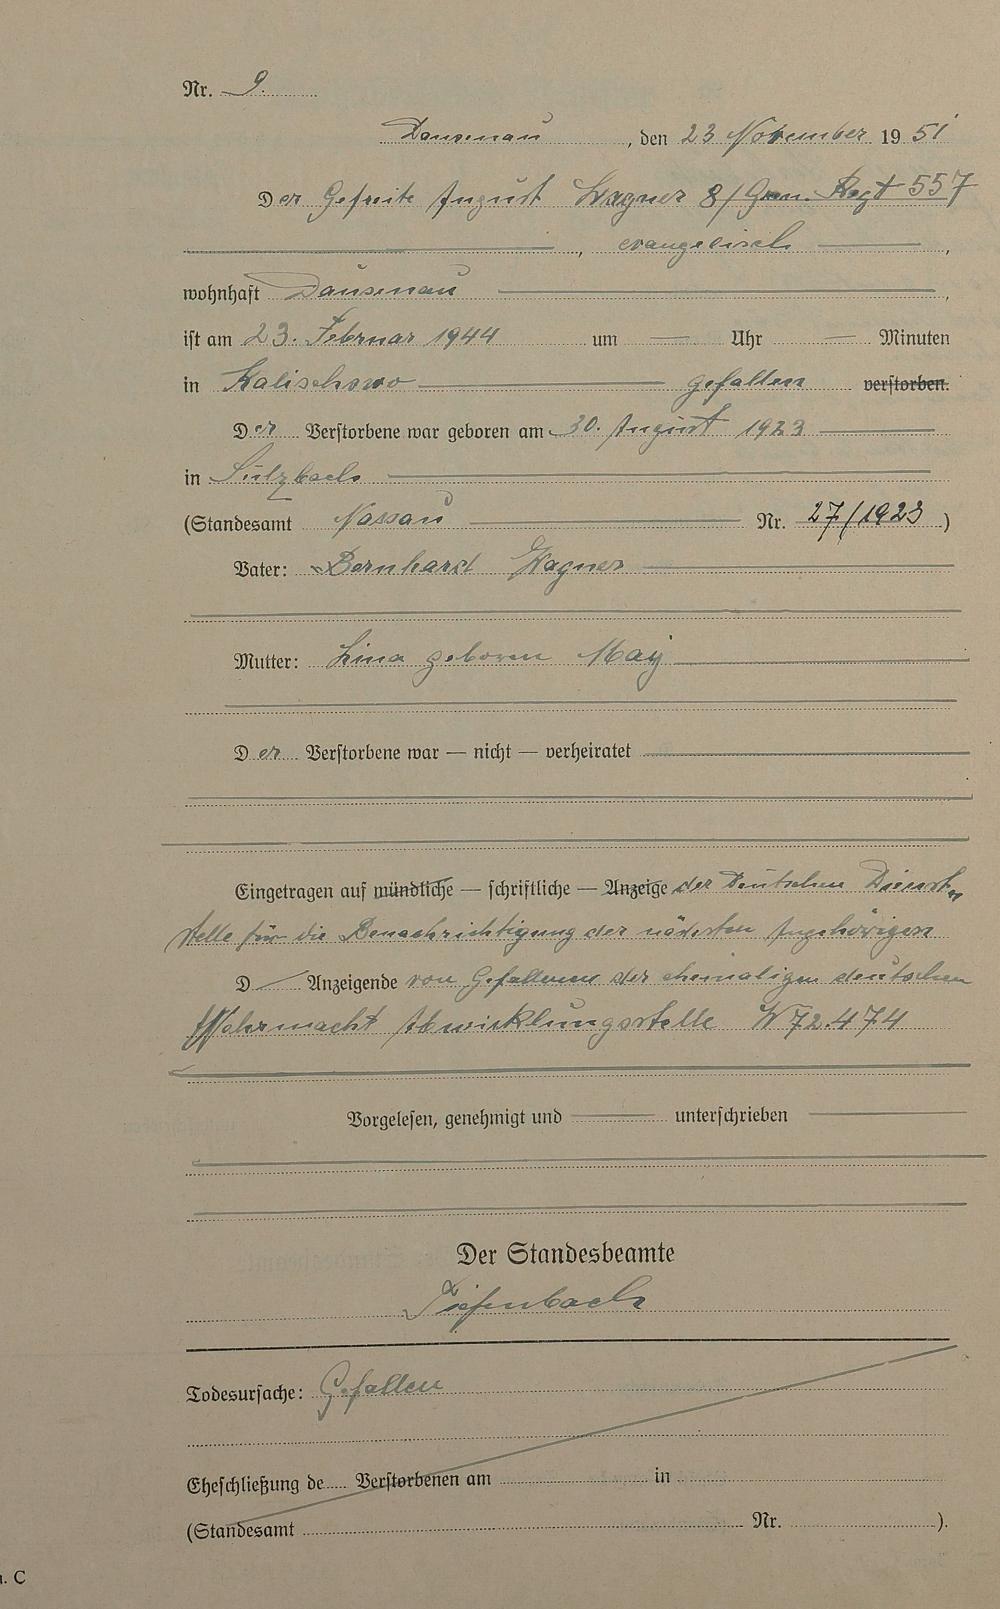 Nr. 9.
Dausenau, den 23 November 1951
Der Gefreite August Wagner 8/Gren. Regt 557
, evangelisch ,
wohnhaft Dausenau ,
ist am 23. Februar 1944 um — Uhr — Minuten
in Kalischowo gefallen verstorben.
Der Verstorbene war geboren am 30. August 1923
in Sulzbach
(Standesamt Nassau Nr. 27/1923 )
Vater: Bernhard Wagner
Mutter: Lina geboren May
Der Verstorbene war — nicht — verheiratet
Eingetragen auf mündliche — schriftliche — Anzeige der Deutschen Dienst„
stelle für die Benachrichtigung der nächsten Angehörigen
D Anzeigende von Gefallenen der ehemaligen deutschen
Wehrmacht Abwicklungsstelle W 72.474
Vorgelesen, genehmigt und — unterschrieben
Der Standesbeamte
Tiefenbach
Todesursache: Gefallen
Eheschließung de..... Verstorbenen am in
(Standesamt Nr. ).
C